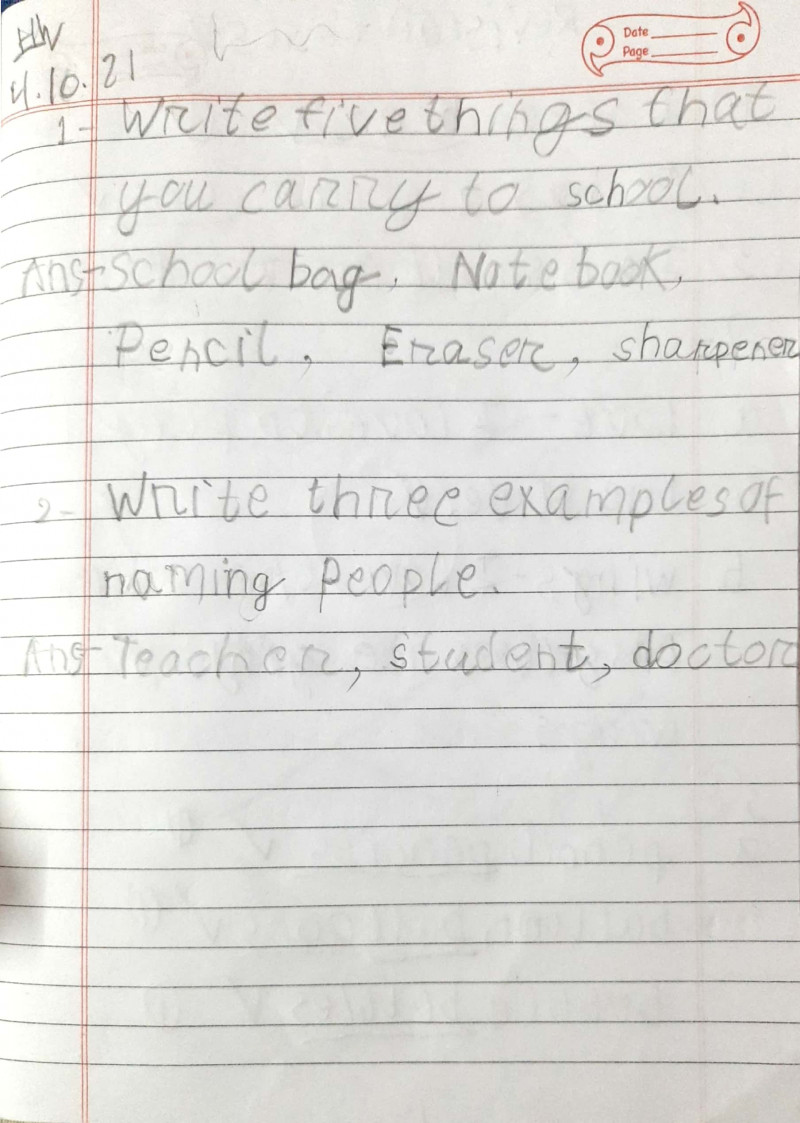 HW
4.10.21
Date
Page
1- Write five things that
you carry to school.
Ans- School bag, Note book,
Pencil, Eraser, sharpener
2- Write three examples of
naming people.
Ans- Teacher, student, doctor